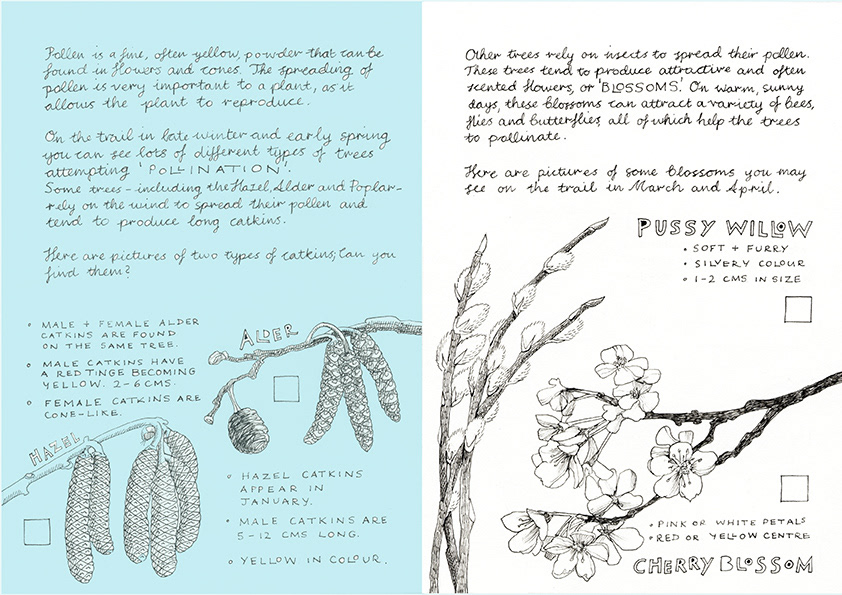 Pollen is a fine, often yellow, powder that can be
found in flowers and cones. The spreading of
pollen is very important to a plant, as it
allows the plant to reproduce.
On the trail in late winter and early spring
you can see lots of different types of trees
attempting 'POLLINATION'.
Some trees - including the Hazel, Alder and Poplar -
rely on the wind to spread their pollen and
tend to produce long catkins.
Here are pictures of two types of catkins; Can you
find them?
• MALE + FEMALE ALDER
CATKINS ARE FOUND
ON THE SAME TREE.
• MALE CATKINS HAVE
A RED TINGE BECOMING
YELLOW. 2-6 CMS.
• FEMALE CATKINS ARE
CONE-LIKE.
ALDER
HAZEL
• HAZEL CATKINS
APPEAR IN
JANUARY.
• MALE CATKINS ARE
5-12 CMS LONG.
• YELLOW IN COLOUR.
Other trees rely on insects to spread their pollen.
These trees tend to produce attractive and often
scented flowers, or 'BLOSSOMS.' On warm, sunny
days, these blossoms can attract a variety of bees,
flies and butterflies, all of which help the trees
to pollinate.
Here are pictures of some blossoms you may
see on the trail in March and April.
PUSSY WILLOW
• SOFT + FURRY
• SILVERY COLOUR
• 1-2 CMS IN SIZE
• PINK OR WHITE PETALS
• RED OR YELLOW CENTRE
CHERRY BLOSSOM